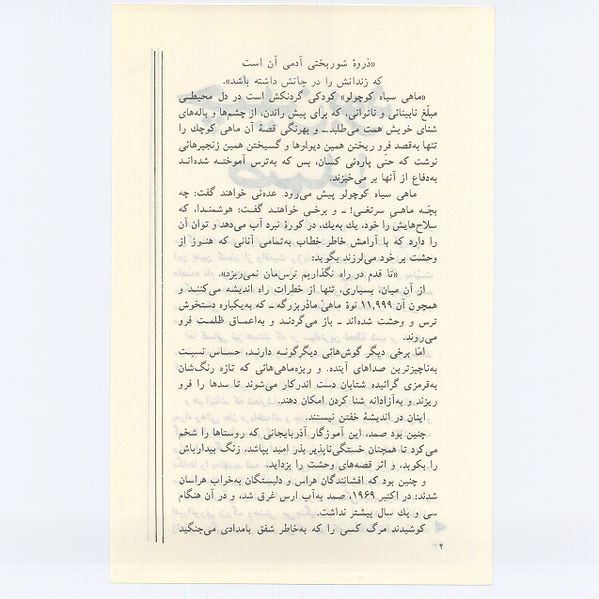 «ذروهٔ شوربختی آدمی آن است
که زندانش را در جانش داشته باشد».
«ماهی سیاه کوچولو» کودکی گردنکش است در دل محیطـی
مبلّغ نابینائی و ناتوانی، که برای پیش راندن، از چشم‌ها و باله‌های
شنای خویش همت می‌طلبد.ـ و بهرنگی قصهٔ آن ماهی کوچك را
تنها به‌قصد فرو ریختن همین دیوارها و گسیختن همین زنجیرهائی
نوشت که حتی پاره‌ئی کسان، بس که به‌ترس آموختـه شده‌انـد
به‌دفاع از آنها بر می‌خیزند.
ماهی سیاه کوچولو پیش می‌رود. عده‌ئی خواهند گفت: چه
بچّـه ماهـی سرتغـی! ـ و برخـی خواهنـد گفـت: هوشمنـدا، که
سلاح‌هایش را خود، یك به‌یك، در کورهٔ نبرد آب می‌دهد و توان آن
را دارد که با آرامش خاطر خطاب به‌تمامی آنانی که هنـوز از
وحشت بر خود می‌لرزند بگوید:
«تا قدم در راه نگذاریم ترس‌مان نمی‌ریزد».
از آن میان، بسیاری، تنها از خطرات راه اندیشه می‌کننـد و
همچون آن ۱۱,۹۹۹ نوهٔ ماهیْ مادربزرگه ـ که به‌یکباره دستخوش
ترس و وحشت شده‌اند ـ باز می‌گردنـد و به‌اعمـاق ظلمـت فرو
می‌روند.
امّا برخی دیگر گوش‌هائی دیگرگونـه دارنـد، حسـاس نسبـت
به‌ناچیزترین صداهای آینده. و ریزه‌ماهی‌هائی که تازه رنگ‌شان
به‌قرمزی گرائیده شتابان دست اندرکار می‌شوند تا سدها را فرو
ریزند و به‌آزادانه شنا کردن امکان دهند.
اینان در اندیشهٔ خفتن نیستند.
چنین بود صمد، این آموزگار آذربایجانی که روستاها را شخم
می‌کرد تا همچنان خستگی‌ناپذیر بذر امید بپاشد، زنگ بیدارباش
را بکوبد، و اثر قصه‌های وحشت را بزداید.
و چنین بود که افشانندگان هراس و دلبستگان به‌خواب هراسان
شدند: در اکتبر ۱۹۶۹، صمد به‌آب ارس غرق شد، و در آن هنگام
سی و یك سال بیشتر نداشت.
کوشیدند مرگ کسی را که به‌خاطر شفق بامدادی می‌جنگید
۴